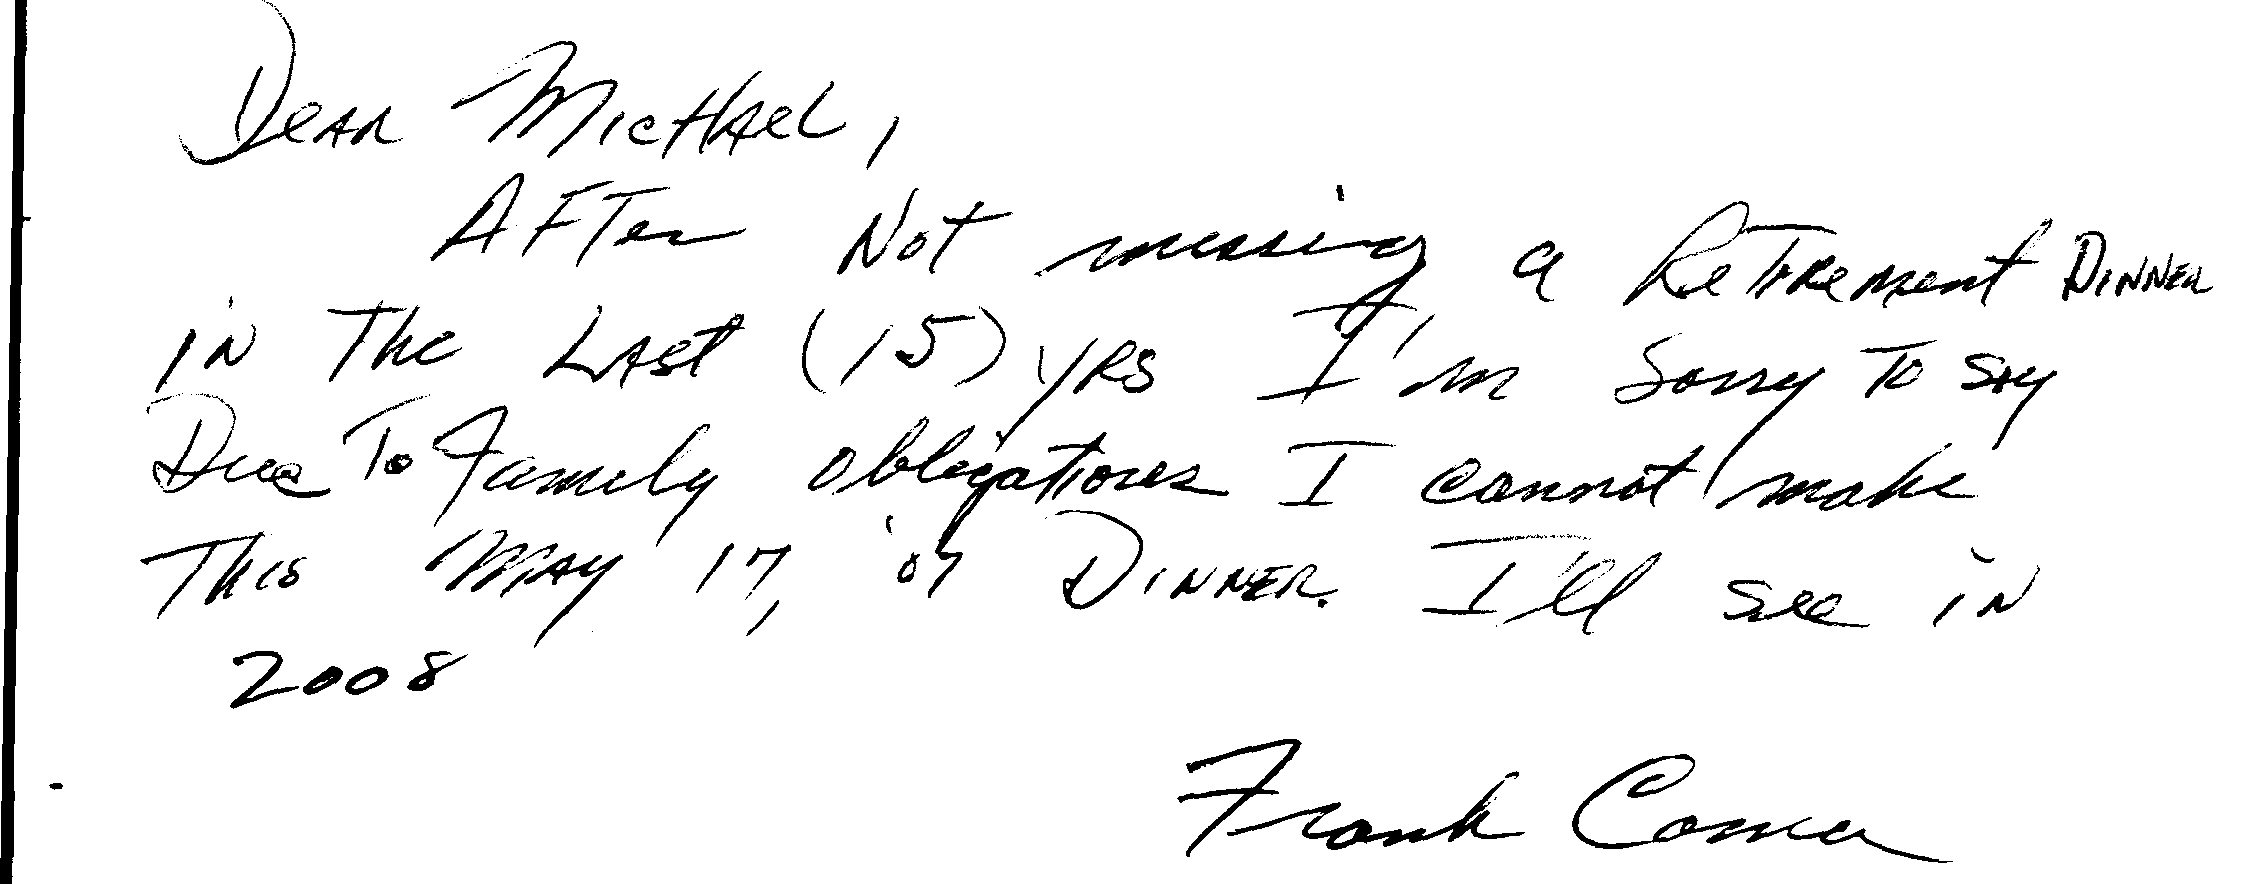 Dear Michael,
After Not missing a Retirement Dinner
in The Last (15) yrs I'm sorry To say
Due To Family obligations I cannot make
This May 17, '07 Dinner. I'll see in
2008
Frank